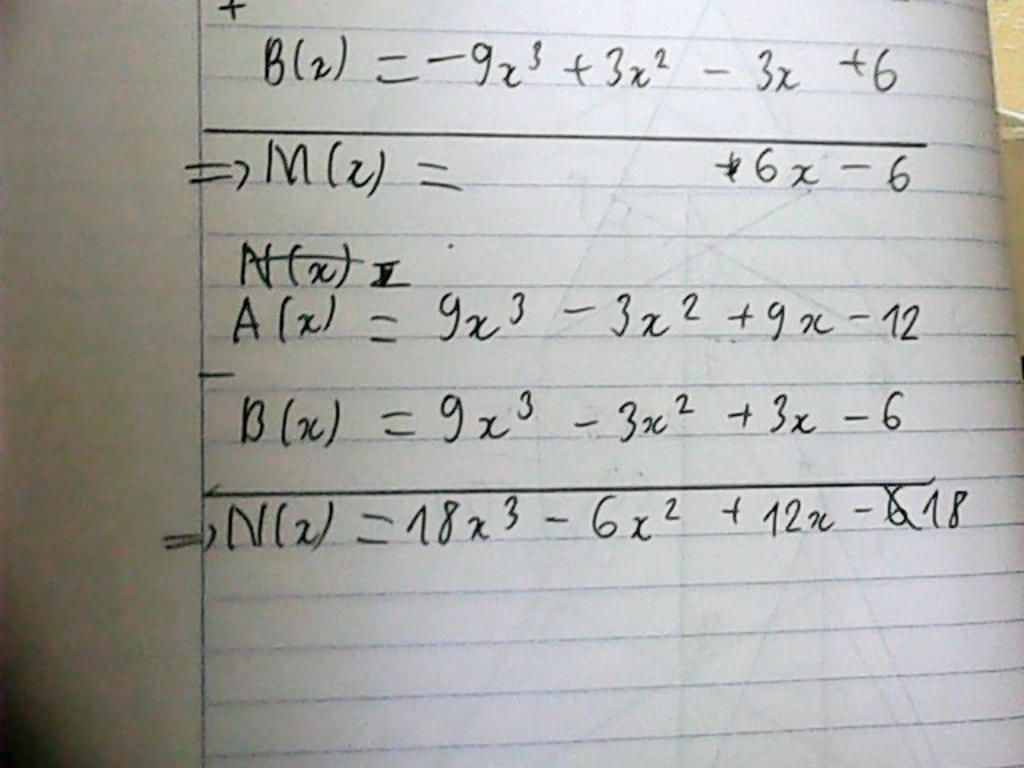 +
B(x) = -9x³ + 3x² - 3x + 6
=> M(x) = +6x - 6
N(x) =
A(x) = 9x³ - 3x² + 9x - 12
-
B(x) = 9x³ - 3x² + 3x - 6
=> N(x) = 18x³ - 6x² + 12x - 18